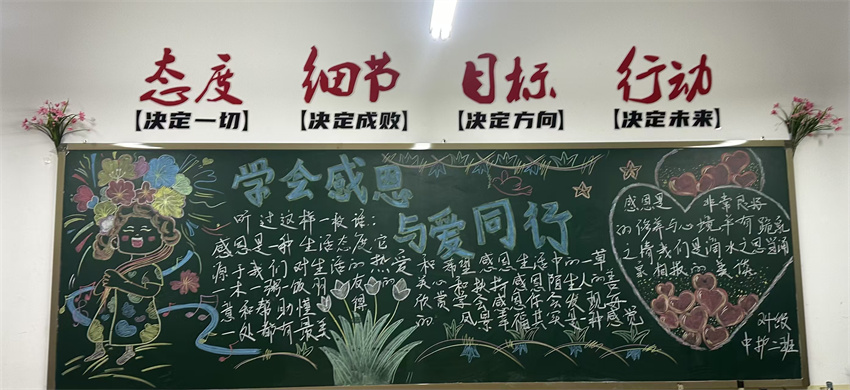 态度 细节 目标 行动
【决定一切】 【决定成败】 【决定方向】 【决定未来】
学会感恩
与爱同行
听过这样一段话：
感恩是一种生活态度它
源于我们对生活的热爱
和希望感恩生活中的一草
一木一粥一饭羽友的
关心和扶持感恩陌生人的善
意和帮助懂得
欣赏是会感恩你会发现好
一处都有最美
的风景幸福其实是一种感觉
感恩是 非常良好
的修养与心境羊有跪乳
之情我们是滴水之恩当涌
泉相报的美德
24级
中护二班